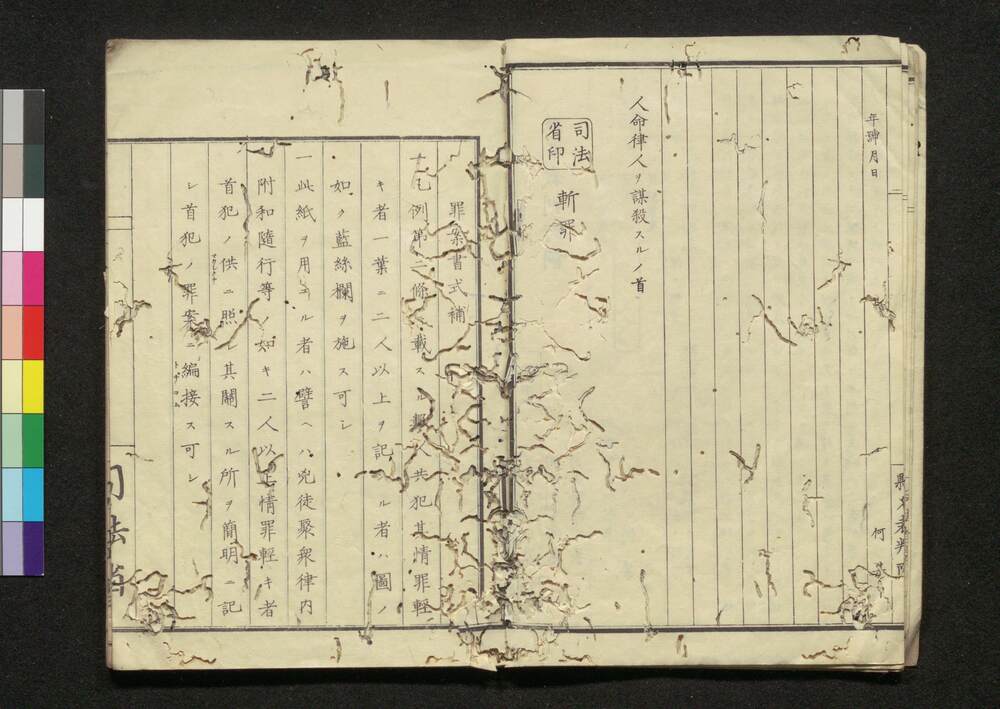 年號月日
何
人命律人ヲ謀殺スルノ首
司法省印
斬罪
罪案書式補
十七例第二條ニ載スル數人共犯其情罪輕
キ者一葉ニ二人以上ヲ記スル者ハ圖ノ
如ク藍絲欄ヲ施ス可シ
一此紙ヲ用ユル者ハ譬ヘハ兇徒聚衆律内
附和隨行等ノ如キ二人以上情罪輕キ者
首犯ノ供ニ照シ其關スル所ヲ簡明ニ記
シ首犯ノ罪案ニ編接ス可シ
司法省